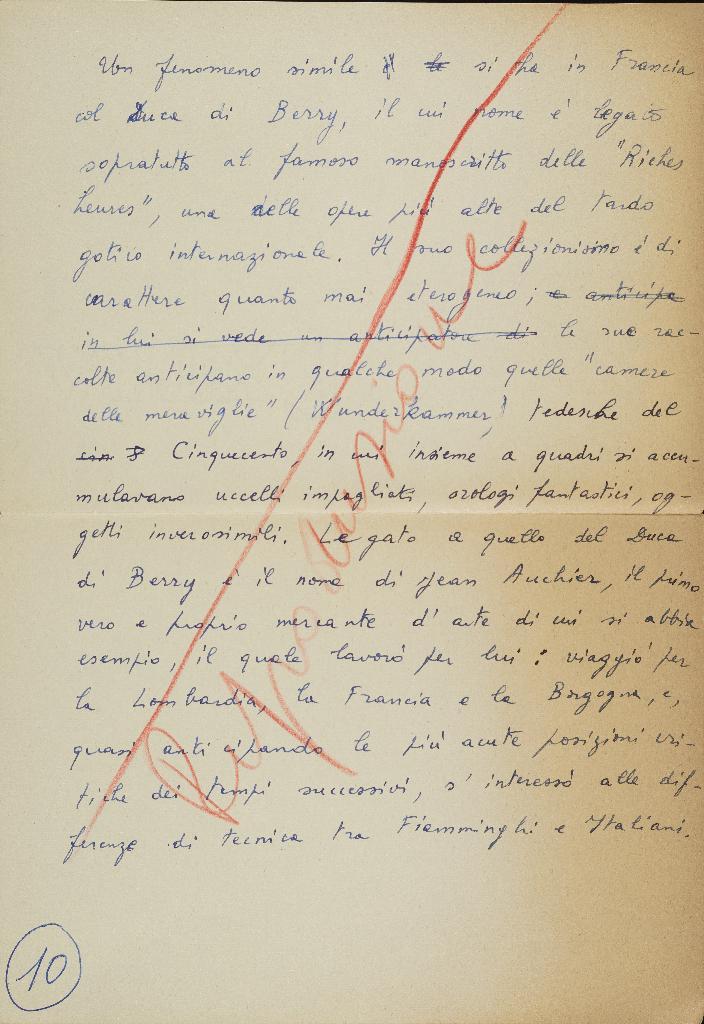 Un fenomeno simile si ha in Francia
col Duca di Berry, il cui nome è legato
sopratutto al famoso manoscritto delle "Riches
heures", una delle opere più alte del tardo
gotico internazionale. Il suo collezionismo è di
carattere quanto mai eterogeneo; e anticipa
in lui si vede un anticipatore di le sue rac-
colte anticipano in qualche modo quelle "camere
delle meraviglie" (Wunderkammer) tedesche del
Cinquecento, in cui insieme a quadri si accu-
mulavano uccelli impagliati, orologi fantastici, og-
getti inverosimili. Legato a quello del Duca
di Berry è il nome di Jean Auchier, il primo
vero e proprio mercante d'arte di cui si abbia
esempio, il quale lavorò per lui: viaggiò per
la Lombardia, la Francia e la Borgogna, e,
quasi anticipando le più acute posizioni cri-
tiche dei tempi successivi, s'interessò alle dif-
ferenze di tecnica tra Fiamminghi e Italiani.
Riproduzione
10